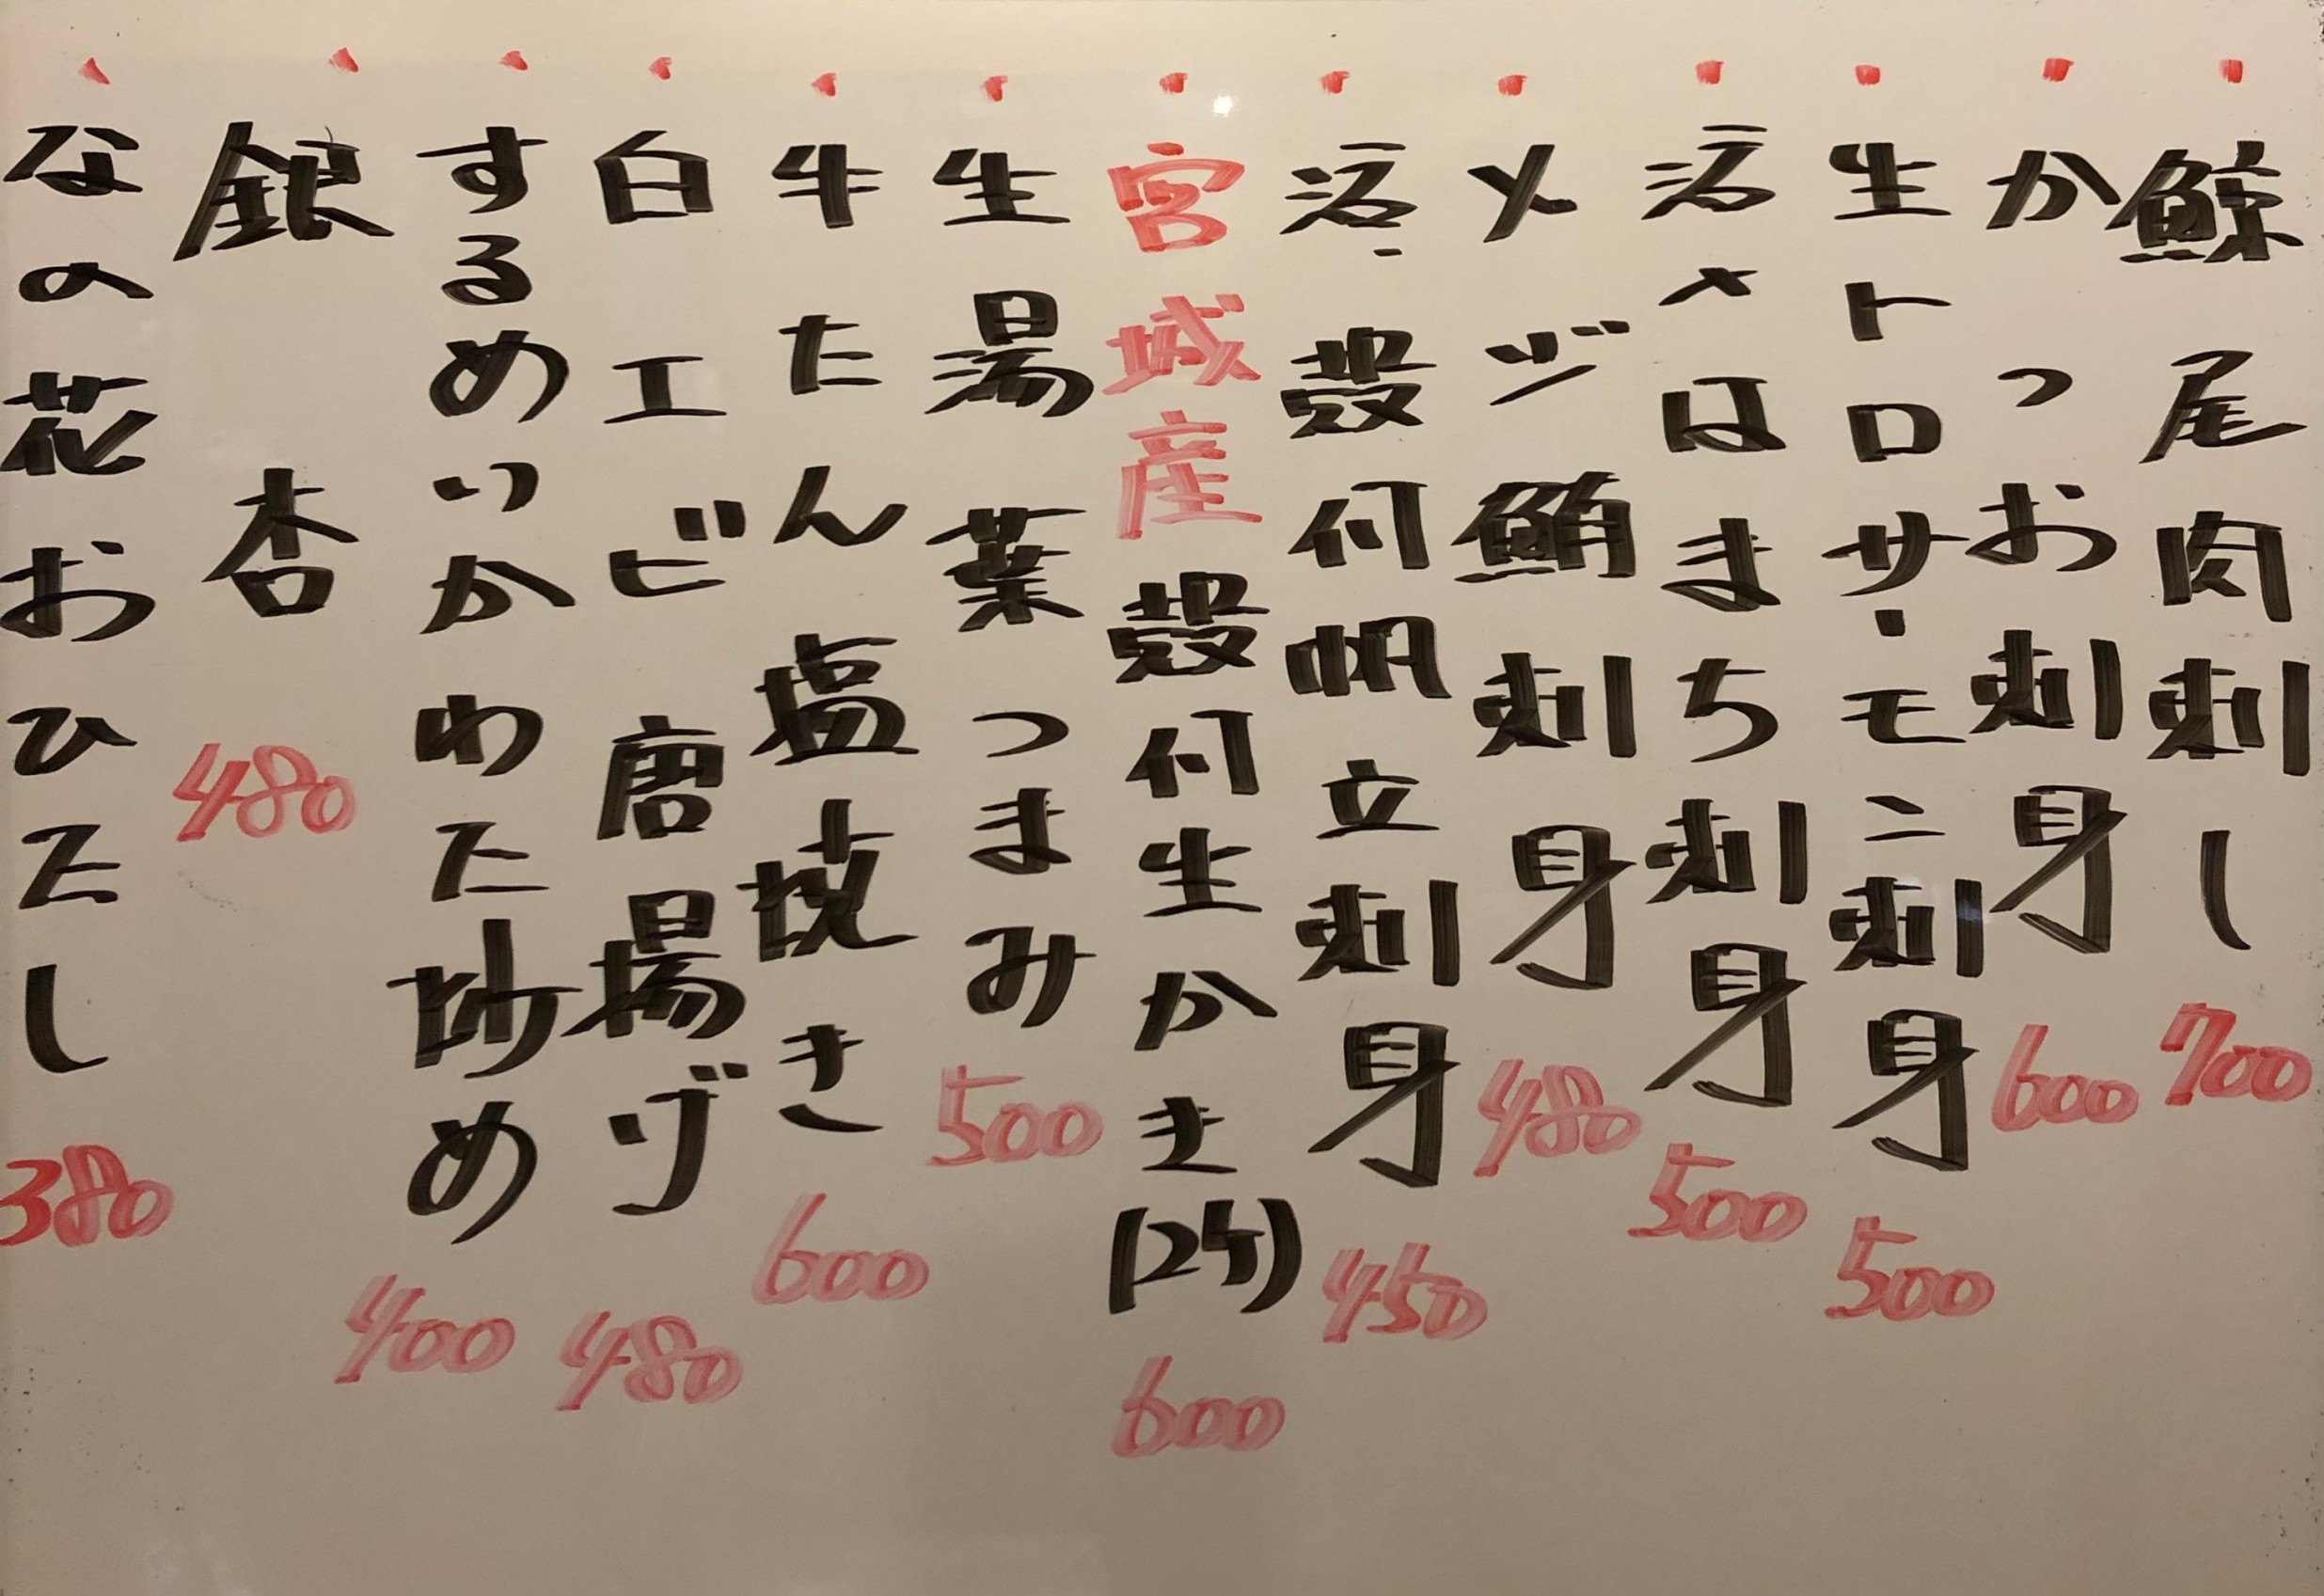 鯨尾肉刺し 700
かつお刺身 600
生トロサーモン刺身 500
活〆はまち刺身 500
メジ鮪刺身 480
活殻付帆立刺身 450
宮城産殻付生かき(2ケ) 600
生湯葉つまみ 500
牛たん塩焼き 600
白エビ唐揚げ 480
するめいかわた炒め 400
銀杏 480
なの花おひたし 380